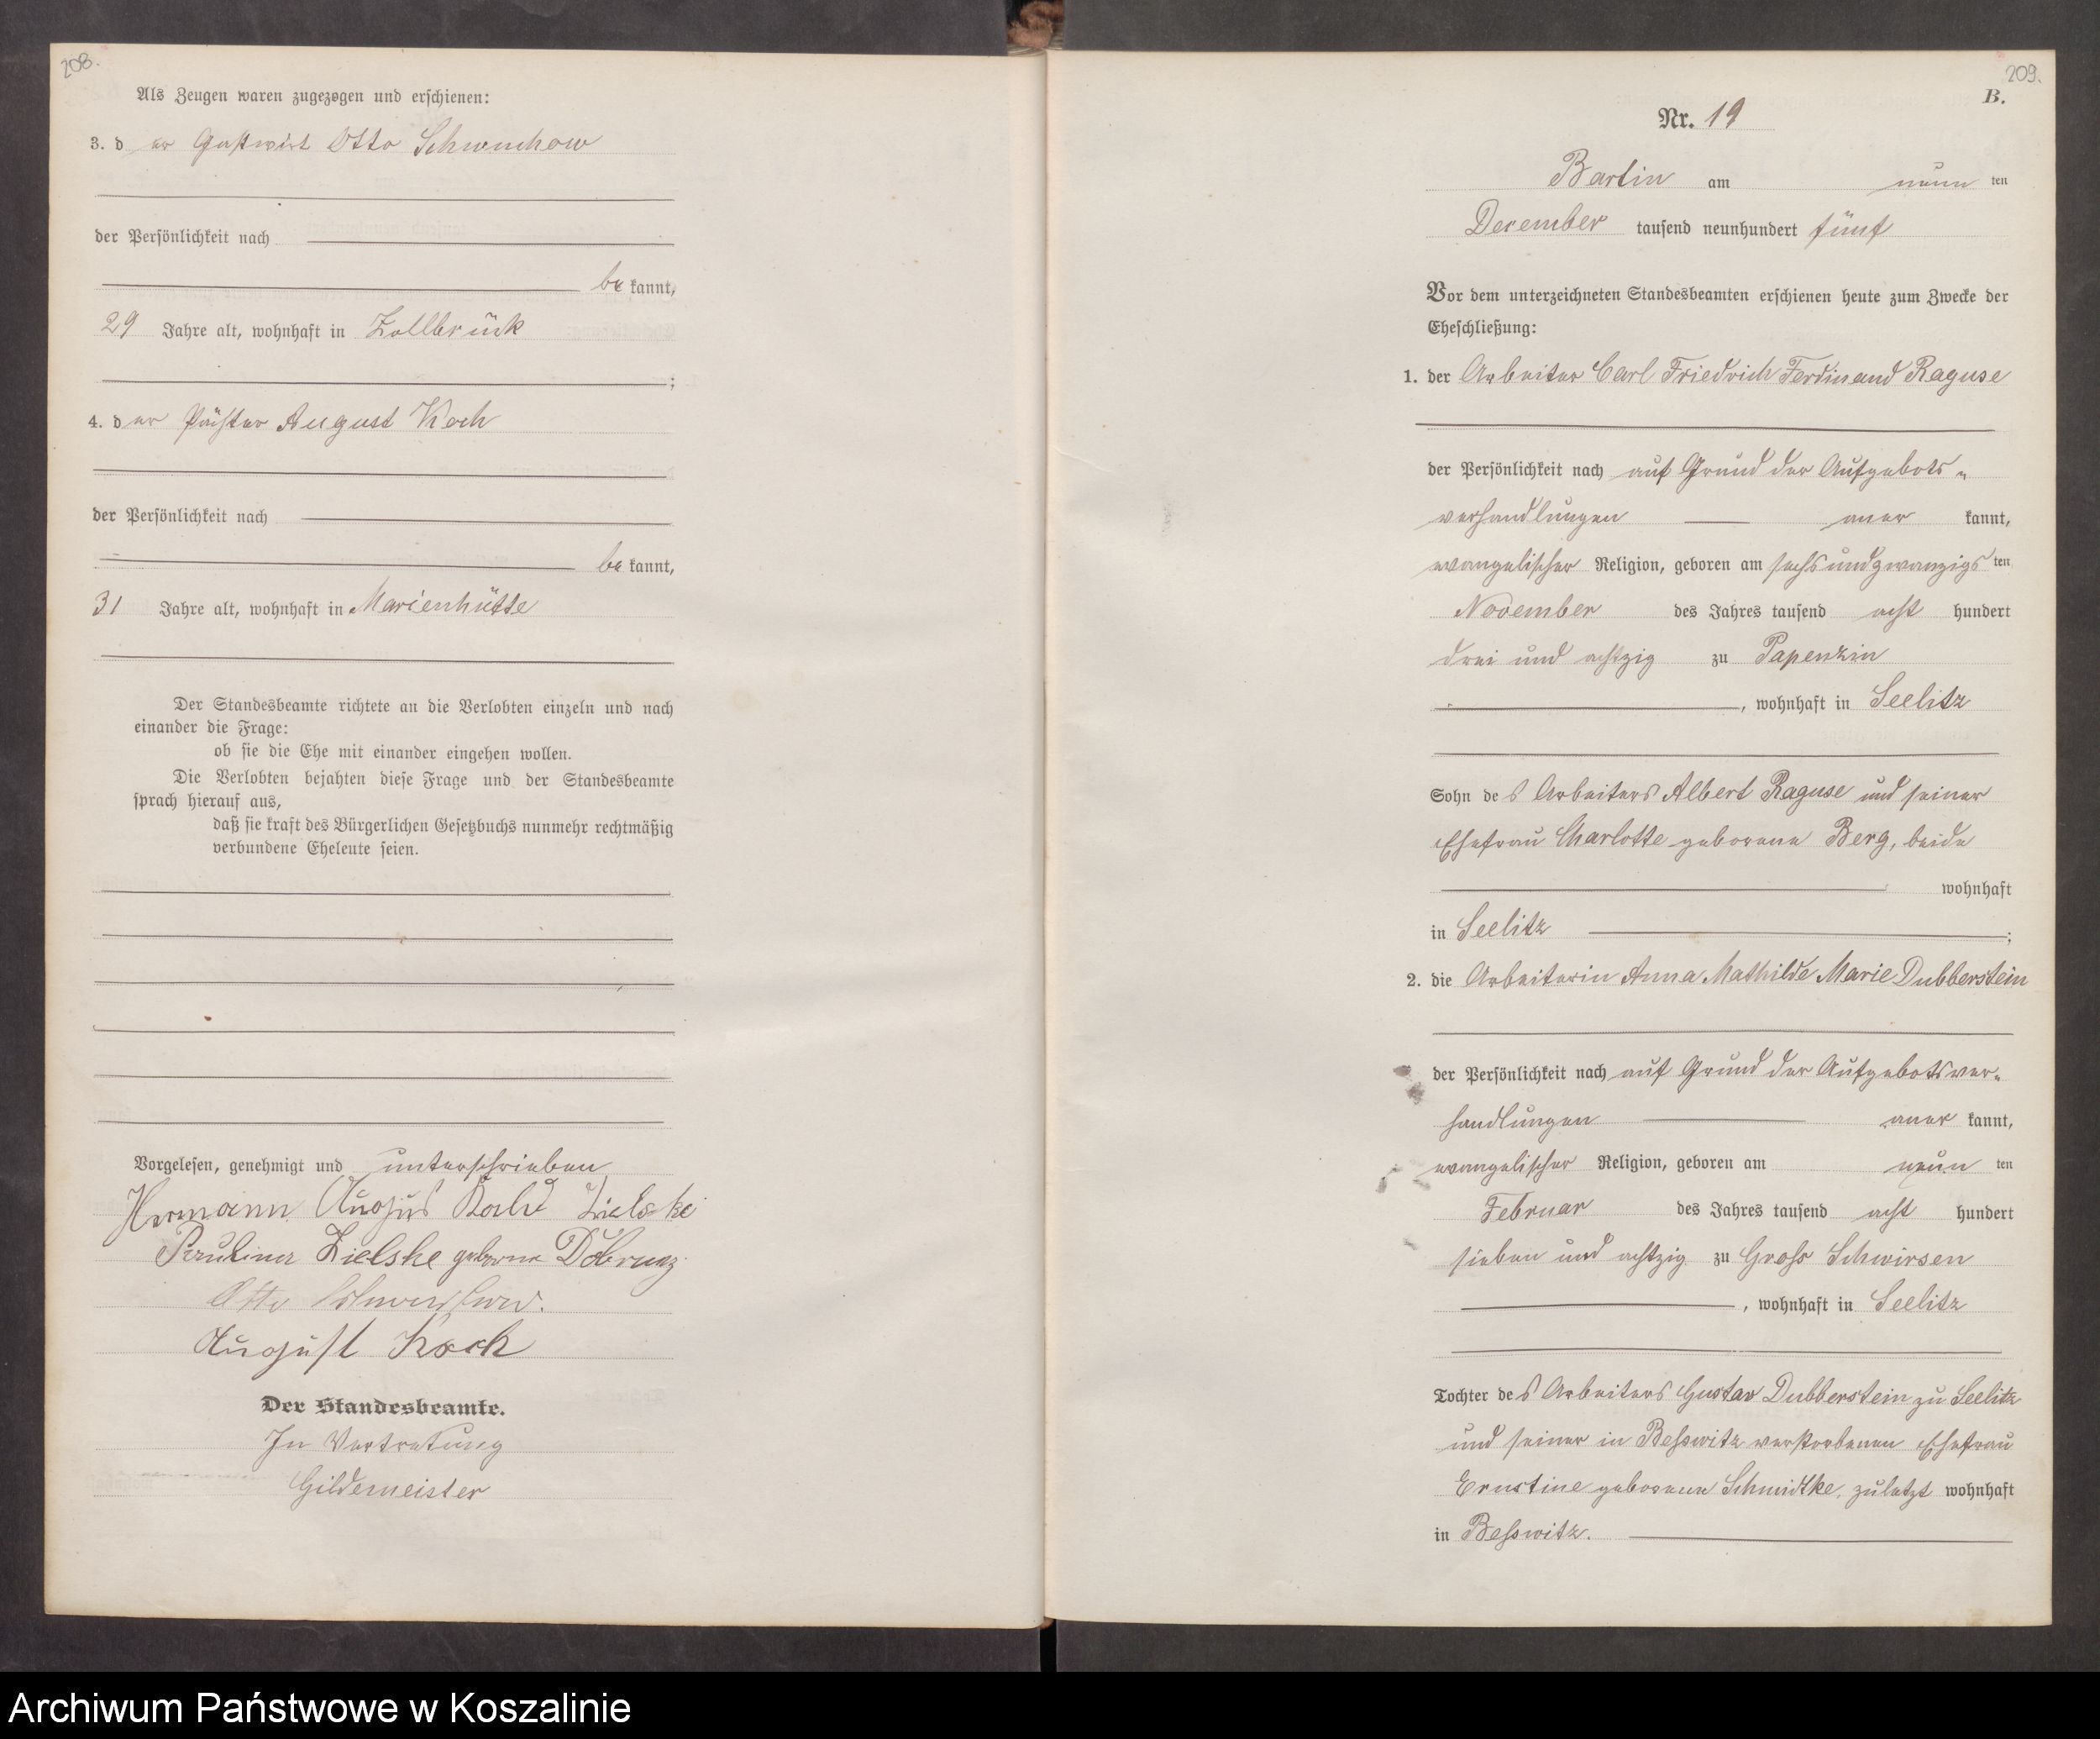 208.
Als Zeugen waren zugezogen und erschienen:
3. der Gastwirt Otto Schwuchow
der Persönlichkeit nach
bekannt,
29 Jahre alt, wohnhaft in Zollbrück
;
4. der Pächter August Koch
der Persönlichkeit nach
bekannt,
31 Jahre alt, wohnhaft in Marienhütte
Der Standesbeamte richtete an die Verlobten einzeln und nach
einander die Frage:
ob sie die Ehe mit einander eingehen wollen.
Die Verlobten bejahten diese Frage und der Standesbeamte
sprach hierauf aus,
daß sie kraft des Bürgerlichen Gesetzbuchs nunmehr rechtmäßig
verbundene Eheleute seien.
Vorgelesen, genehmigt und unterschrieben
Hermann August Zielske
Pauline Zielske geborne
Otto Schwuchow.
August Koch
Der Standesbeamte.
In Vertretung
Gildemeister
209.
B.
Nr. 19
Bartin am neunten
December tausend neunhundert fünf
Vor dem unterzeichneten Standesbeamten erschienen heute zum Zwecke der
Eheschließung:
1. der Arbeiter Carl Friedrich Ferdinand Raguse
der Persönlichkeit nach auf Grund der Aufgebots-
verhandlungen anerkannt,
evangelischer Religion, geboren am sechsundzwanzigsten
November des Jahres tausend achthundert
drei und achtzig zu Papenzin
, wohnhaft in Seelitz
Sohn des Arbeiters Albert Raguse und seiner
Ehefrau Charlotte geborene Berg, beide
wohnhaft
in Seelitz ;
2. die Arbeiterin Anna Mathilde Marie Dubberstein
der Persönlichkeit nach auf Grund der Aufgebotsver-
handlungen anerkannt,
evangelischer Religion, geboren am neunten
Februar des Jahres tausend achthundert
sieben und achtzig zu Gross Schwirsen
, wohnhaft in Seelitz
Tochter des Arbeiters Gustav Dubberstein zu Seelitz
und seiner in Besswitz verstorbenen Ehefrau
Ernstine geborene Schmidtke, zuletzt wohnhaft
in Besswitz.
Archiwum Państwowe w Koszalinie